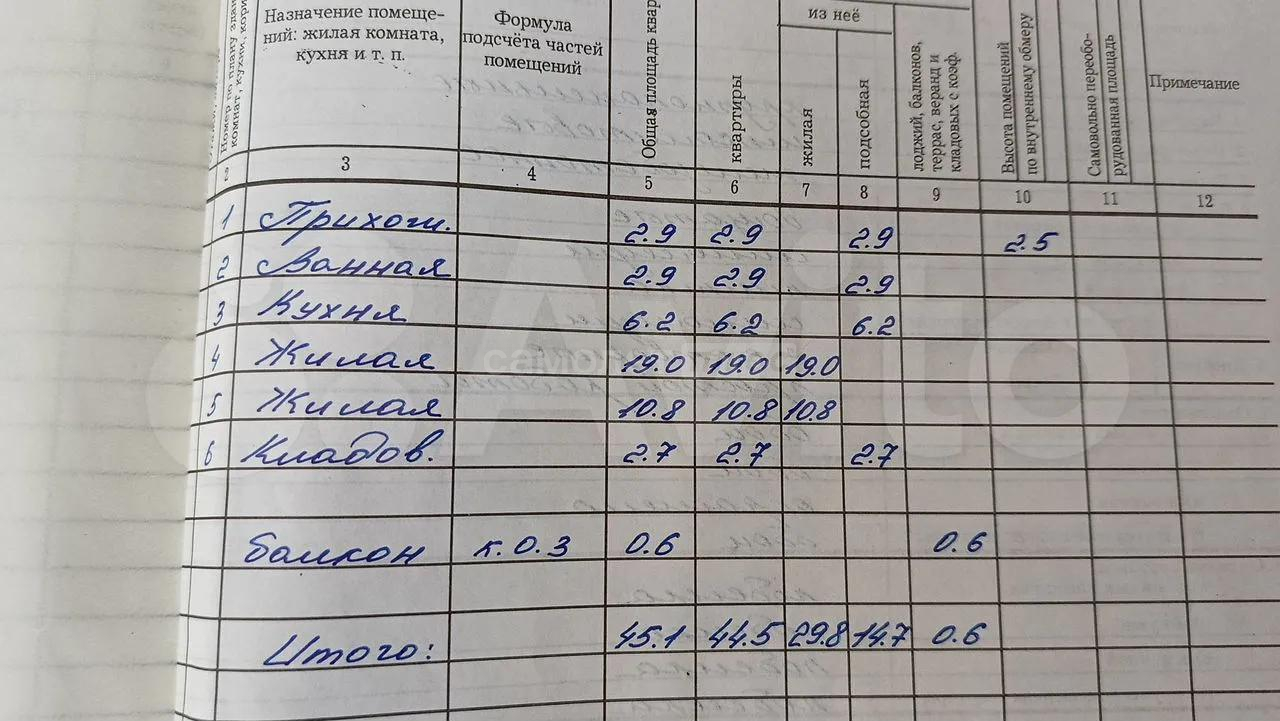 Номер по плану
комнат, кухни, кори
Назначение помеще-
ний: жилая комната,
кухня и т. п.
Формула
подсчёта частей
помещений
Общая площадь квар
квартиры
из неё
жилая
подсобная
лоджий, балконов,
террас, веранд и
кладовых с коэф.
Высота помещений
по внутреннему обмеру
Самовольно переобо-
рудованная площадь
Примечание
2 3 4 5 6 7 8 9 10 11 12
1 Прихож. 2.9 2.9 2.9 2.5
2 Ванная 2.9 2.9 2.9
3 Кухня 6.2 6.2 6.2
4 Жилая 19.0 19.0 19.0
5 Жилая 10.8 10.8 10.8
6 Кладов. 2.7 2.7 2.7
балкон к.0.3 0.6 0.6
Итого: 45.1 44.5 29.8 14.7 0.6